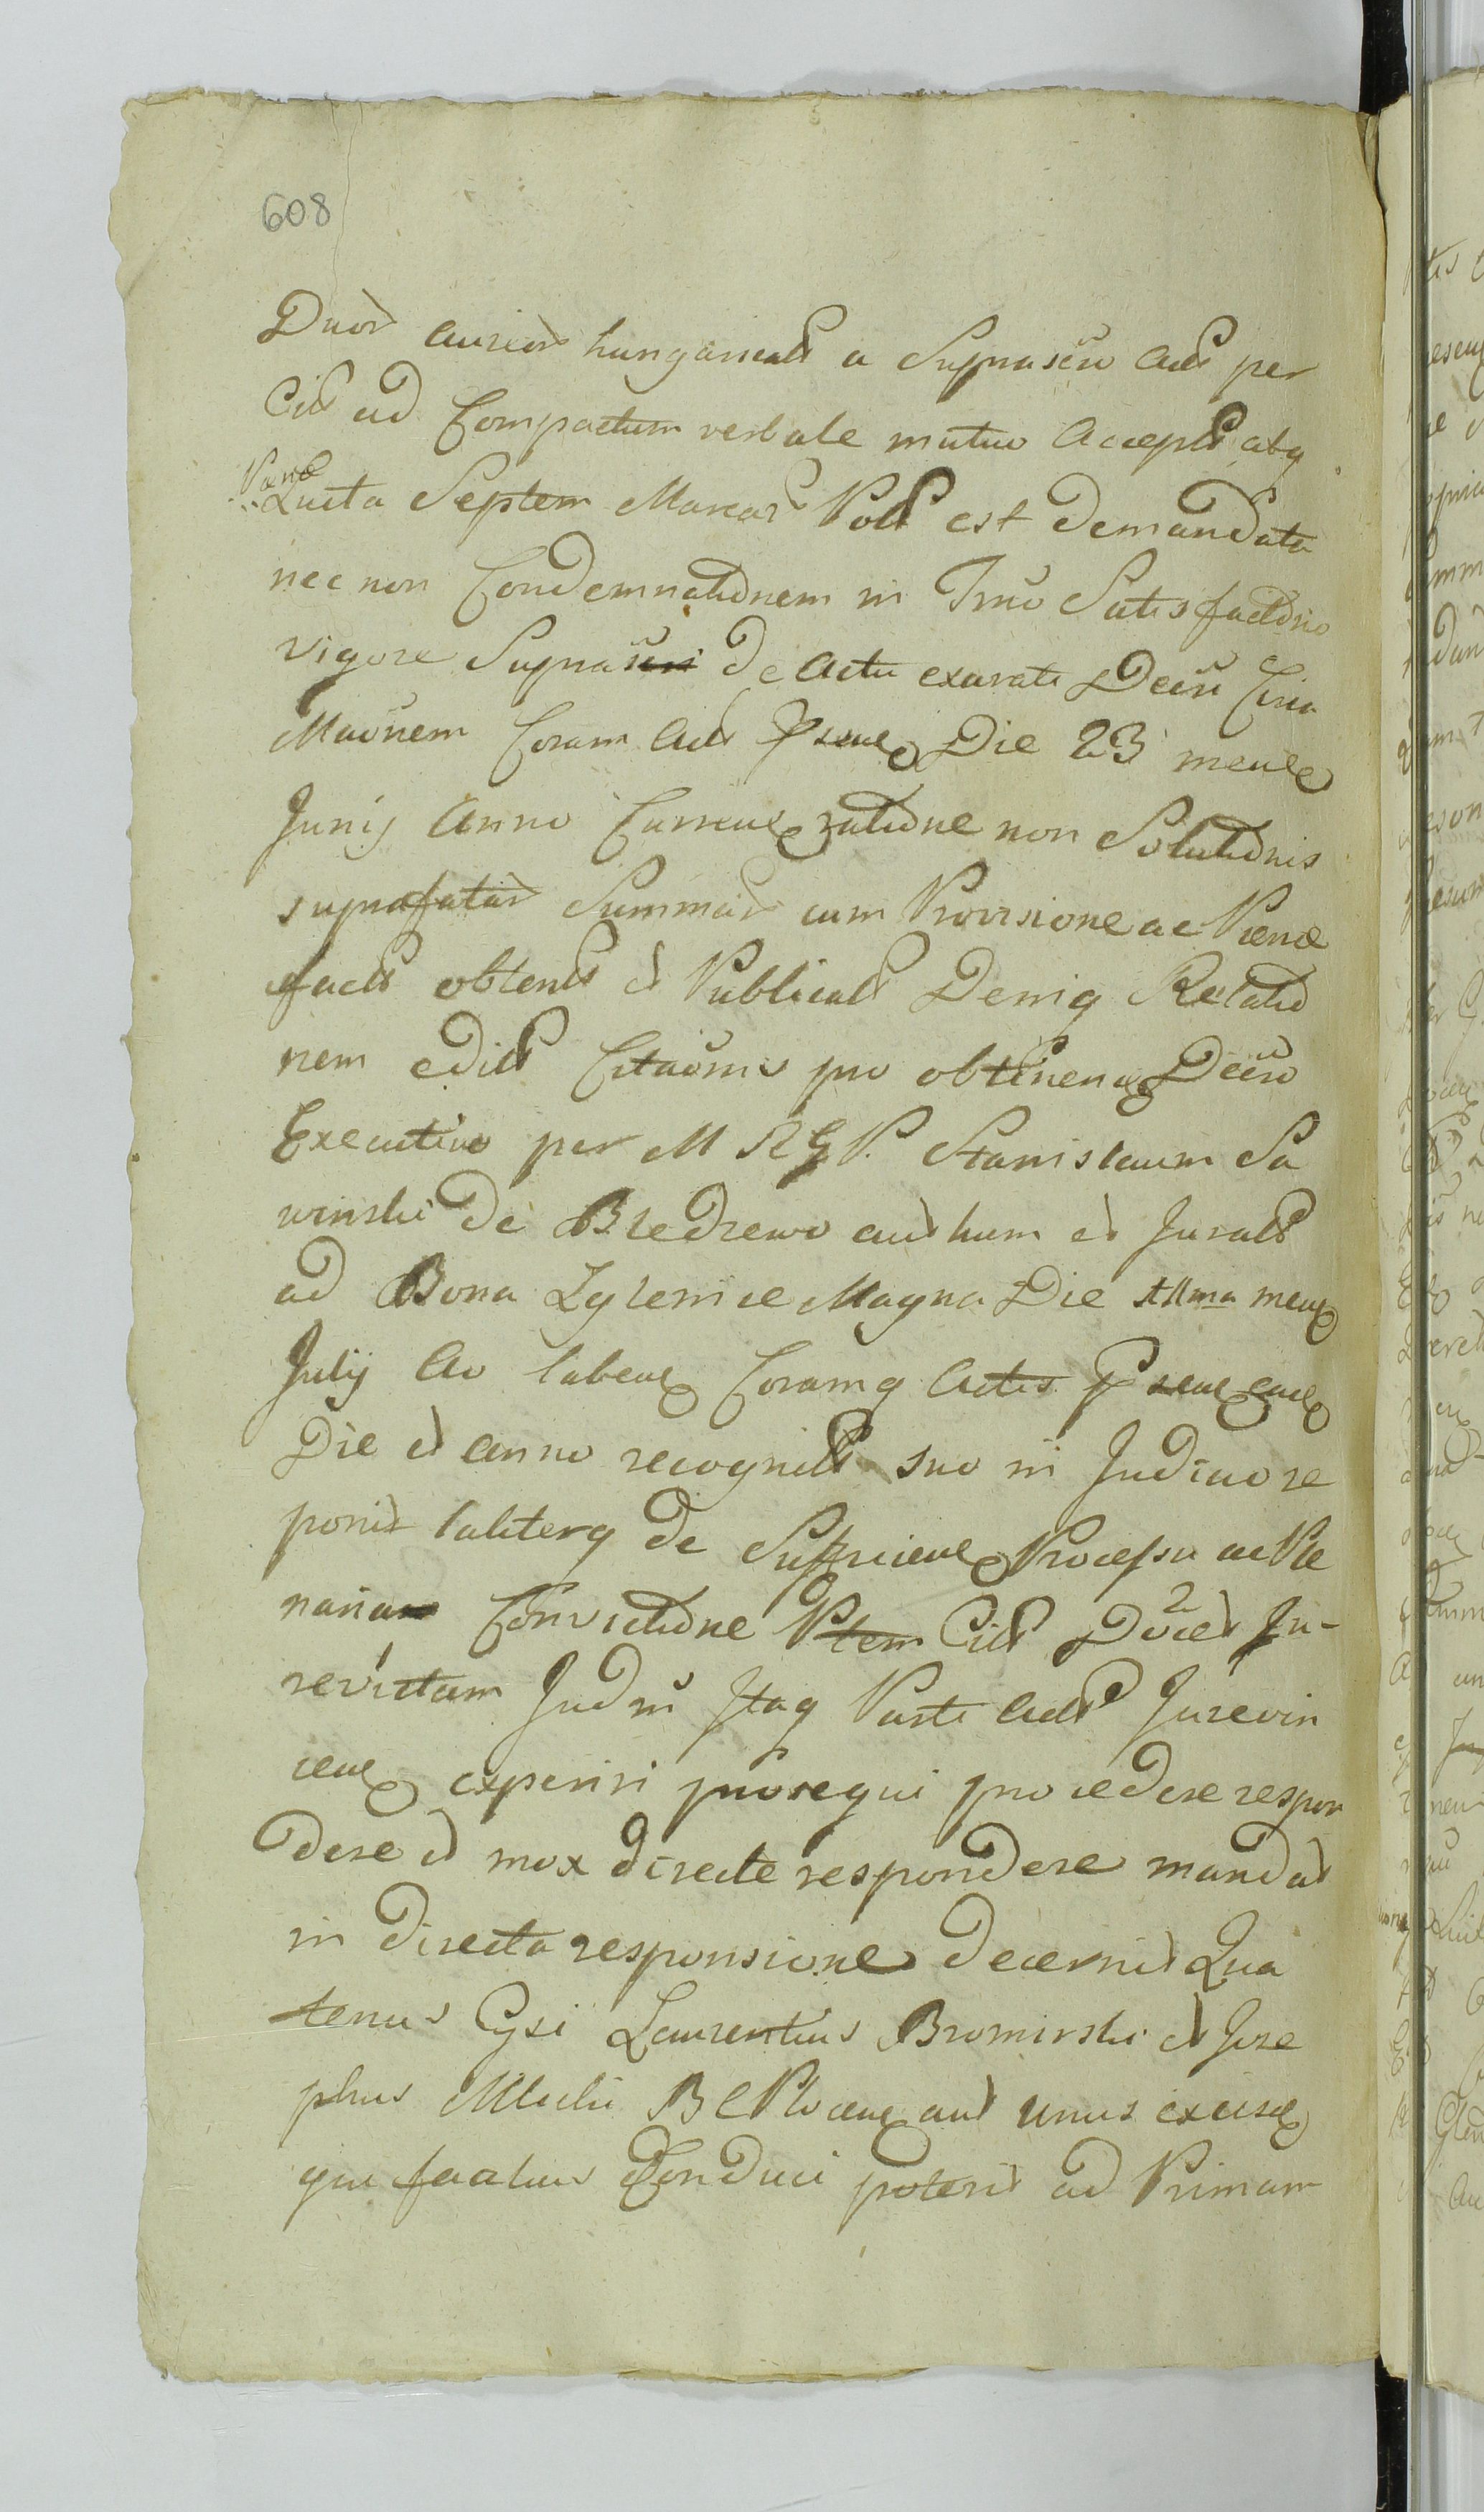 608
Duor aureor hungarical a Suprascro Act per
Cit ad Compactum verbale mutuo Accept atq
Pœna
Lucta Septem Marcar Pol est demandata
nec non Condemnationem in Trno Satisfactionio
vigore Suprascri de Actu exarati Decri Circa
Maonem Coram Act Psen Die 23 mens
Junij Anno Curren ratione non Solutionis
suprafatar Summar cum Provisione ac Pœnœ
fact obtent et Publicat Deniq Relatio
nem edict Citaonis pro obtinen Decro
Executivo per M R G P. Stanislaum Sa
winski de Bledzewo authum et Jurat
ad Bona Zglenice Magna Die 11ma mens
Julij Ao laben Coramq Actis Psen eu
Die et anno recognit suo in Judicio re
ponit taliterq de Sufficien Processu ac Ple
naria Convictione Ptem Cit 2 Docet In-
revictam Judm Itaq Parti Act Jurevin
cen experiri prosequi procedere respon
dere et mox directe respondere mandat
in directa responsione decernit Qua
tenus Gsi Laurentius Bromirski et Jose
phus Mlicki B C Plocen aut unus exeis
qui facilius Conduci poterit ad Primam